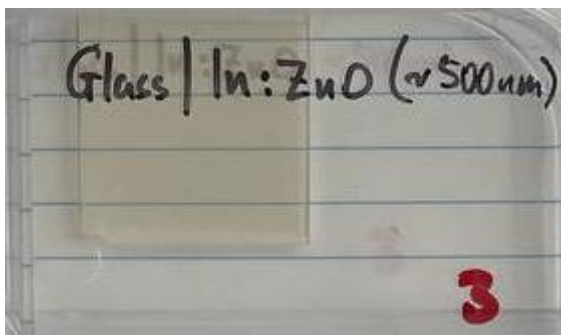 Glass | In:ZnO (~500nm)
3